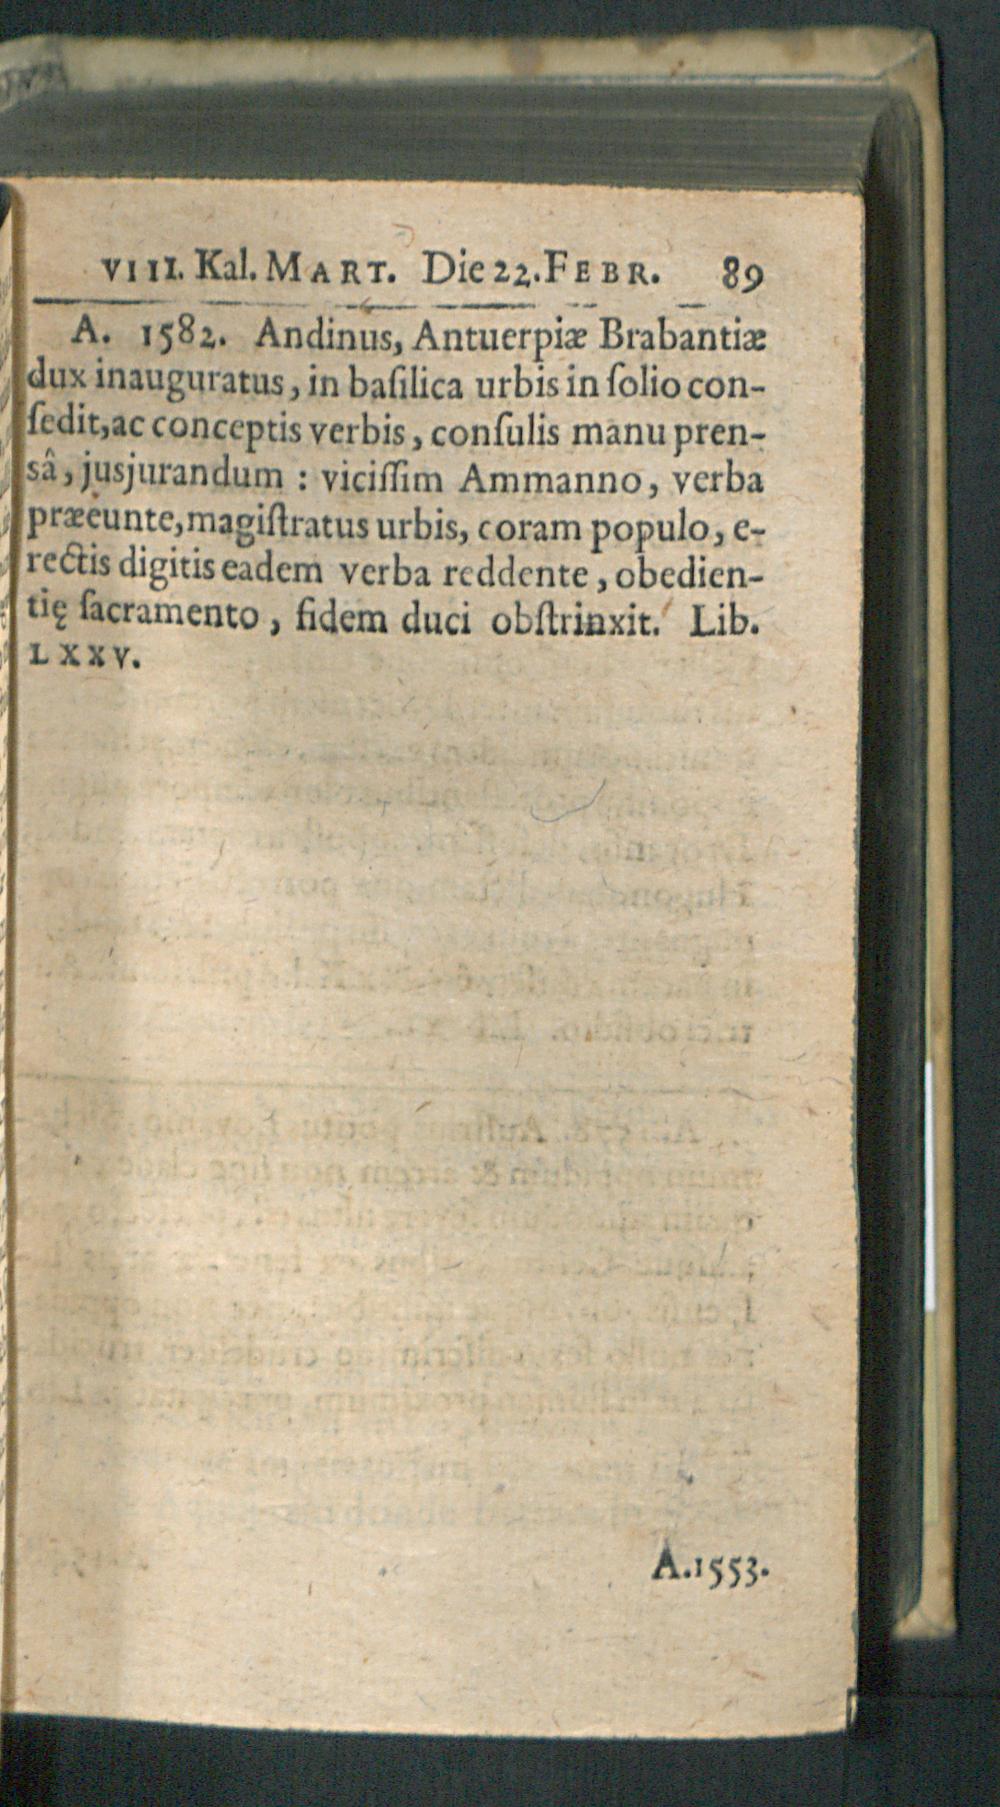 VIII. Kal. MART. Die 22. FEBR. 89
A. 1582. Andinus, Antuerpiæ Brabantiæ
dux inauguratus, in baſilica urbis in ſolio con-
ſedit, ac conceptis verbis, conſulis manu pren-
sâ, jusjurandum : viciſſim Ammanno, verba
præeunte, magiſtratus urbis, coram populo, e-
rectis digitis eadem verba reddente, obedien-
tię ſacramento, fidem duci obſtrinxit. Lib.
LXXV.
A. 1553.